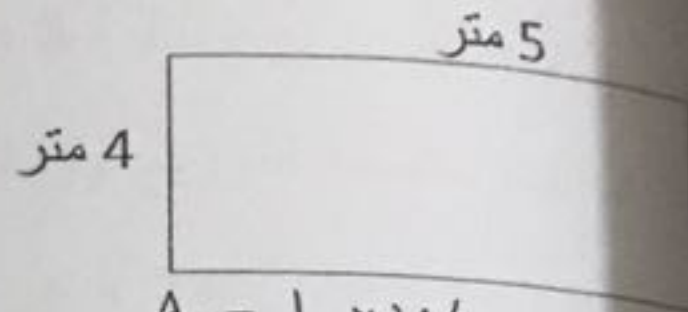 5 متر
4 متر